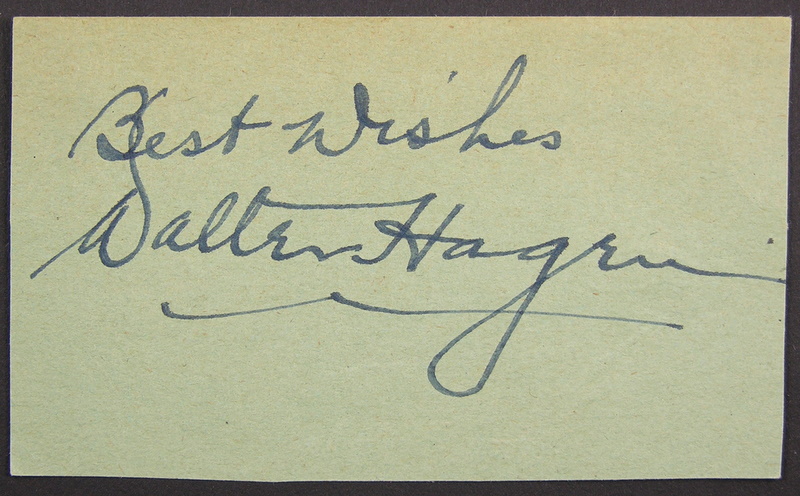 Best Wishes
Walter Hagen